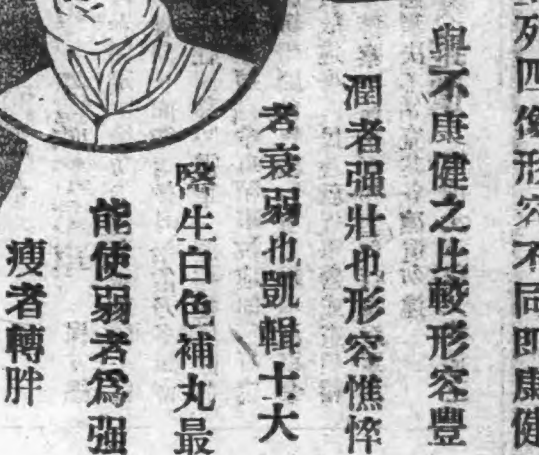 列四像形容不同即康健
與不康健之比較形容豐
潤者强壯也形容憔悴
者衰弱也凱輯十大
醫生白色補丸最
能使弱者爲强
瘦者轉胖